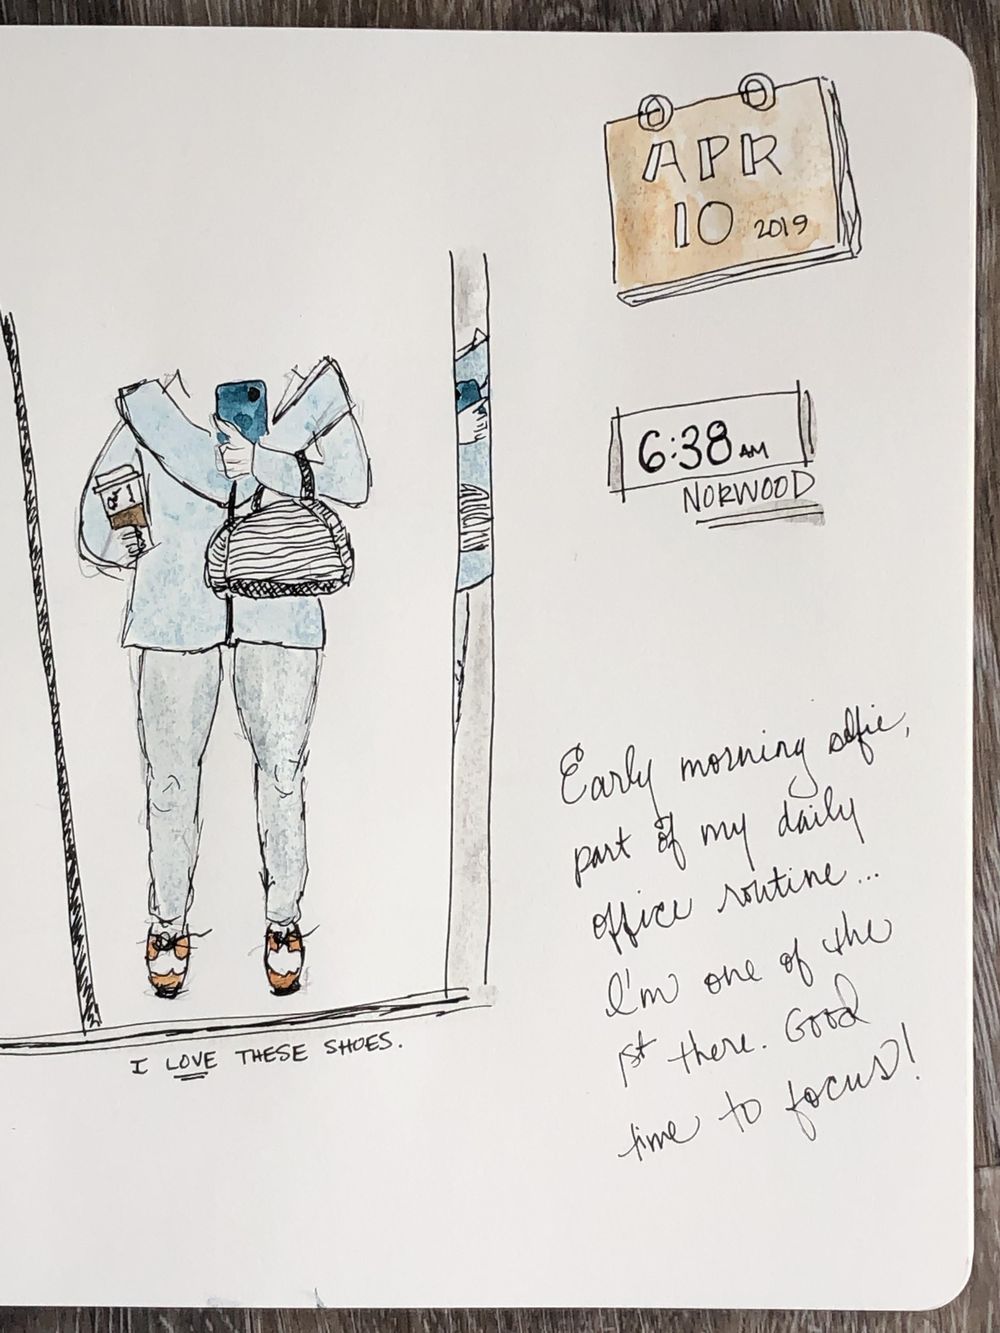 APR
10 2019
6:38 AM
NORWOOD
Early morning selfie,
part of my daily
office routine...
I'm one of the
1st there. Good
time to focus!
I LOVE THESE SHOES.